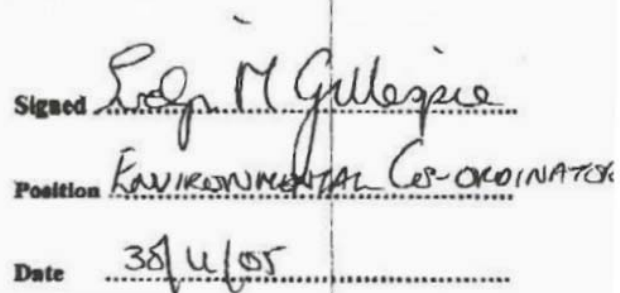 Signed M Gillespie
Position ENVIRONMENTAL CO-ORDINATOR
Date